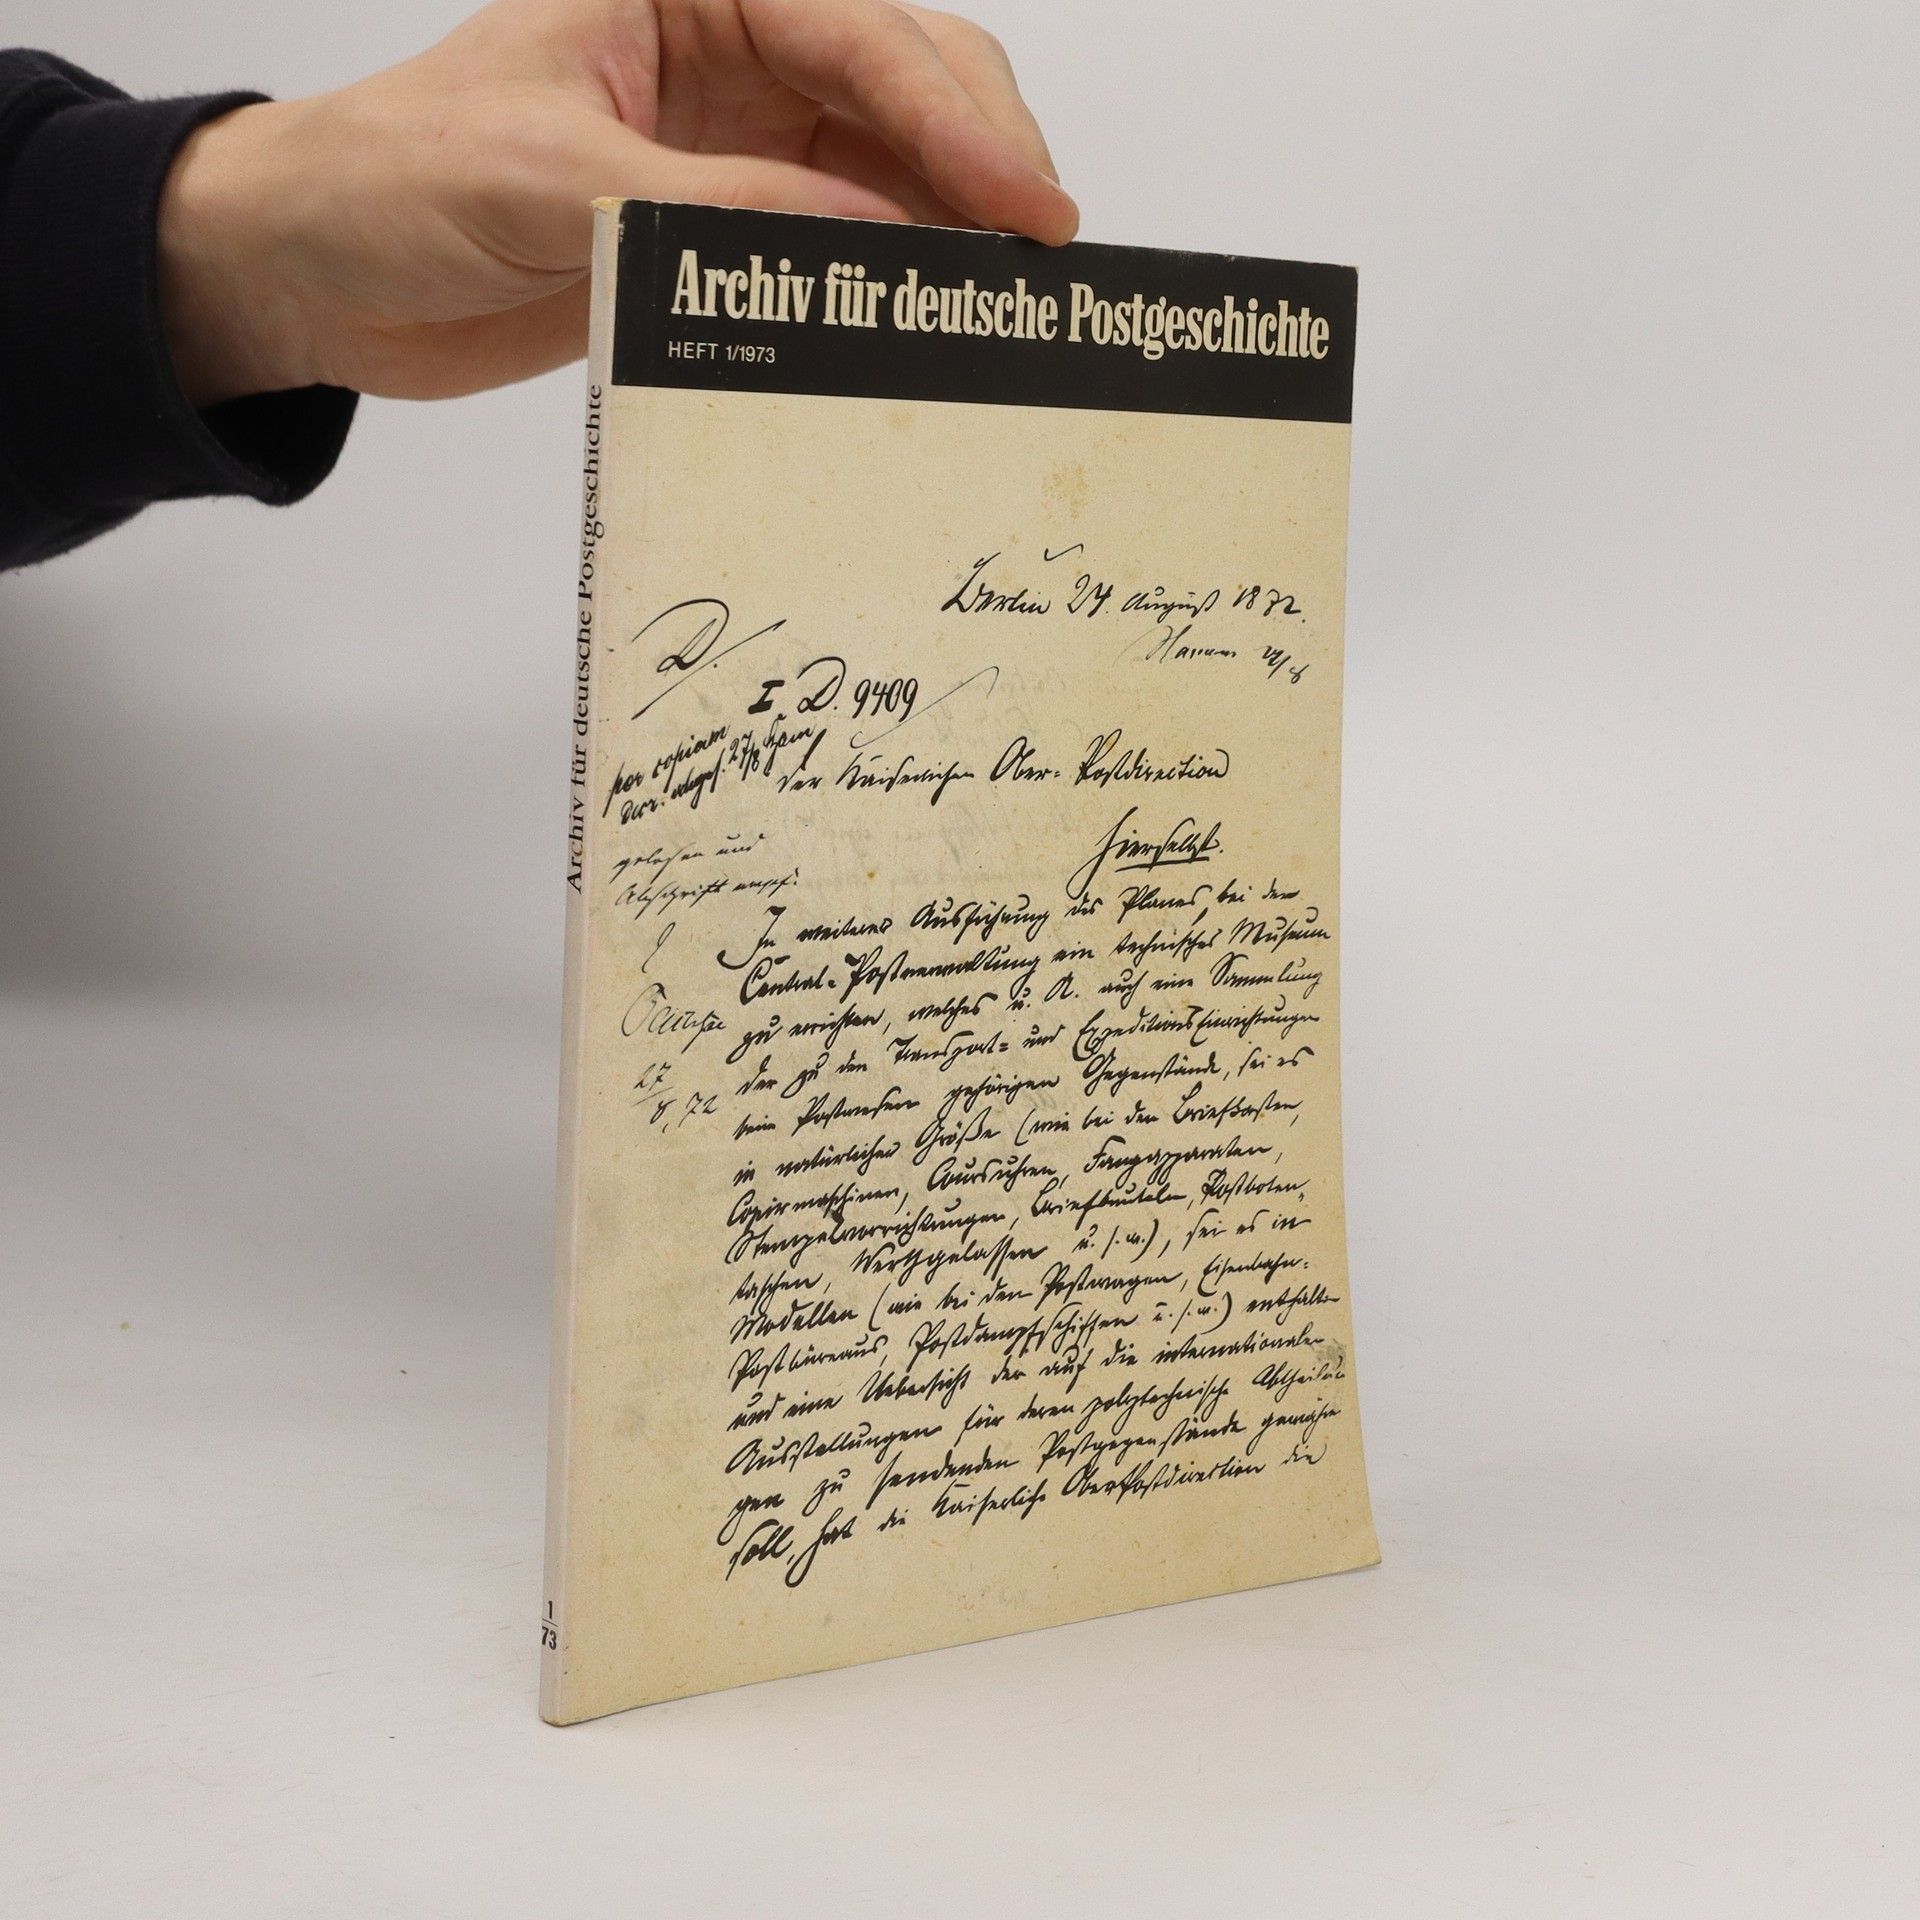 Archiv für deutsche Postgeschichte
HEFT 1/1973
Archiv für deutsche Postgeschichte
1/73
Berlin 24. August 1872.
D.
I. D. 9409
per copiam
27/8
der Kaiserlichen Ober-Postdirection
hierselbst.
gelesen und
Abschrift empf.
27/8, 72
In weiterer Ausführung des Planes, bei der
Central-Postverwaltung ein technisches Museum
zu errichten, welches u. A. auch eine Sammlung
der zu den Transport- und Expeditions Einrichtungen
beim Postwesen gehörigen Gegenstände, sei es
in natürlicher Größe (wie bei den Briefkasten,
Copirmaschinen, Coursuhren, Fangapparaten,
Stempelvorrichtungen, Briefbeuteln, Postboten-
taschen, Werthgelassen u. s. w.), sei es in
Modellen (wie bei den Postwagen, Eisenbahn-
Postbüreaus, Postdampfschiffen u. s. w.) enthalten
und eine Uebersicht der auf die internationalen
Ausstellungen für deren polytechnische Abtheilun
gen zu sendenden Postgegenstände gewähren
soll, hat die Kaiserliche OberPostdirection die